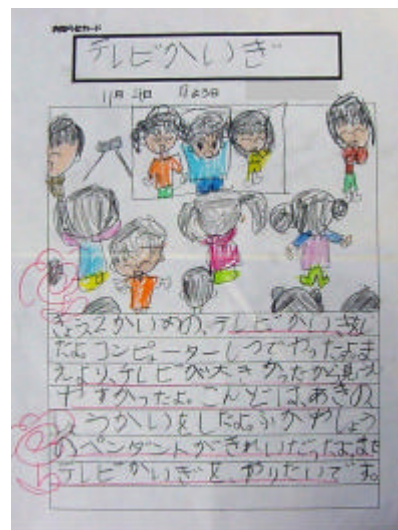 テレビかいぎ
11月
きょう2かいめの、テレビかいぎを
だよ。コンピューターしつでやったよま
えより、テレビが大きかったから見え
やすかったよ。こんどは、あきの
しょうかいをしたよ。ふかやしょう
のペンダントがきれいだったよ、また
テレビかいぎを、やりたいです。